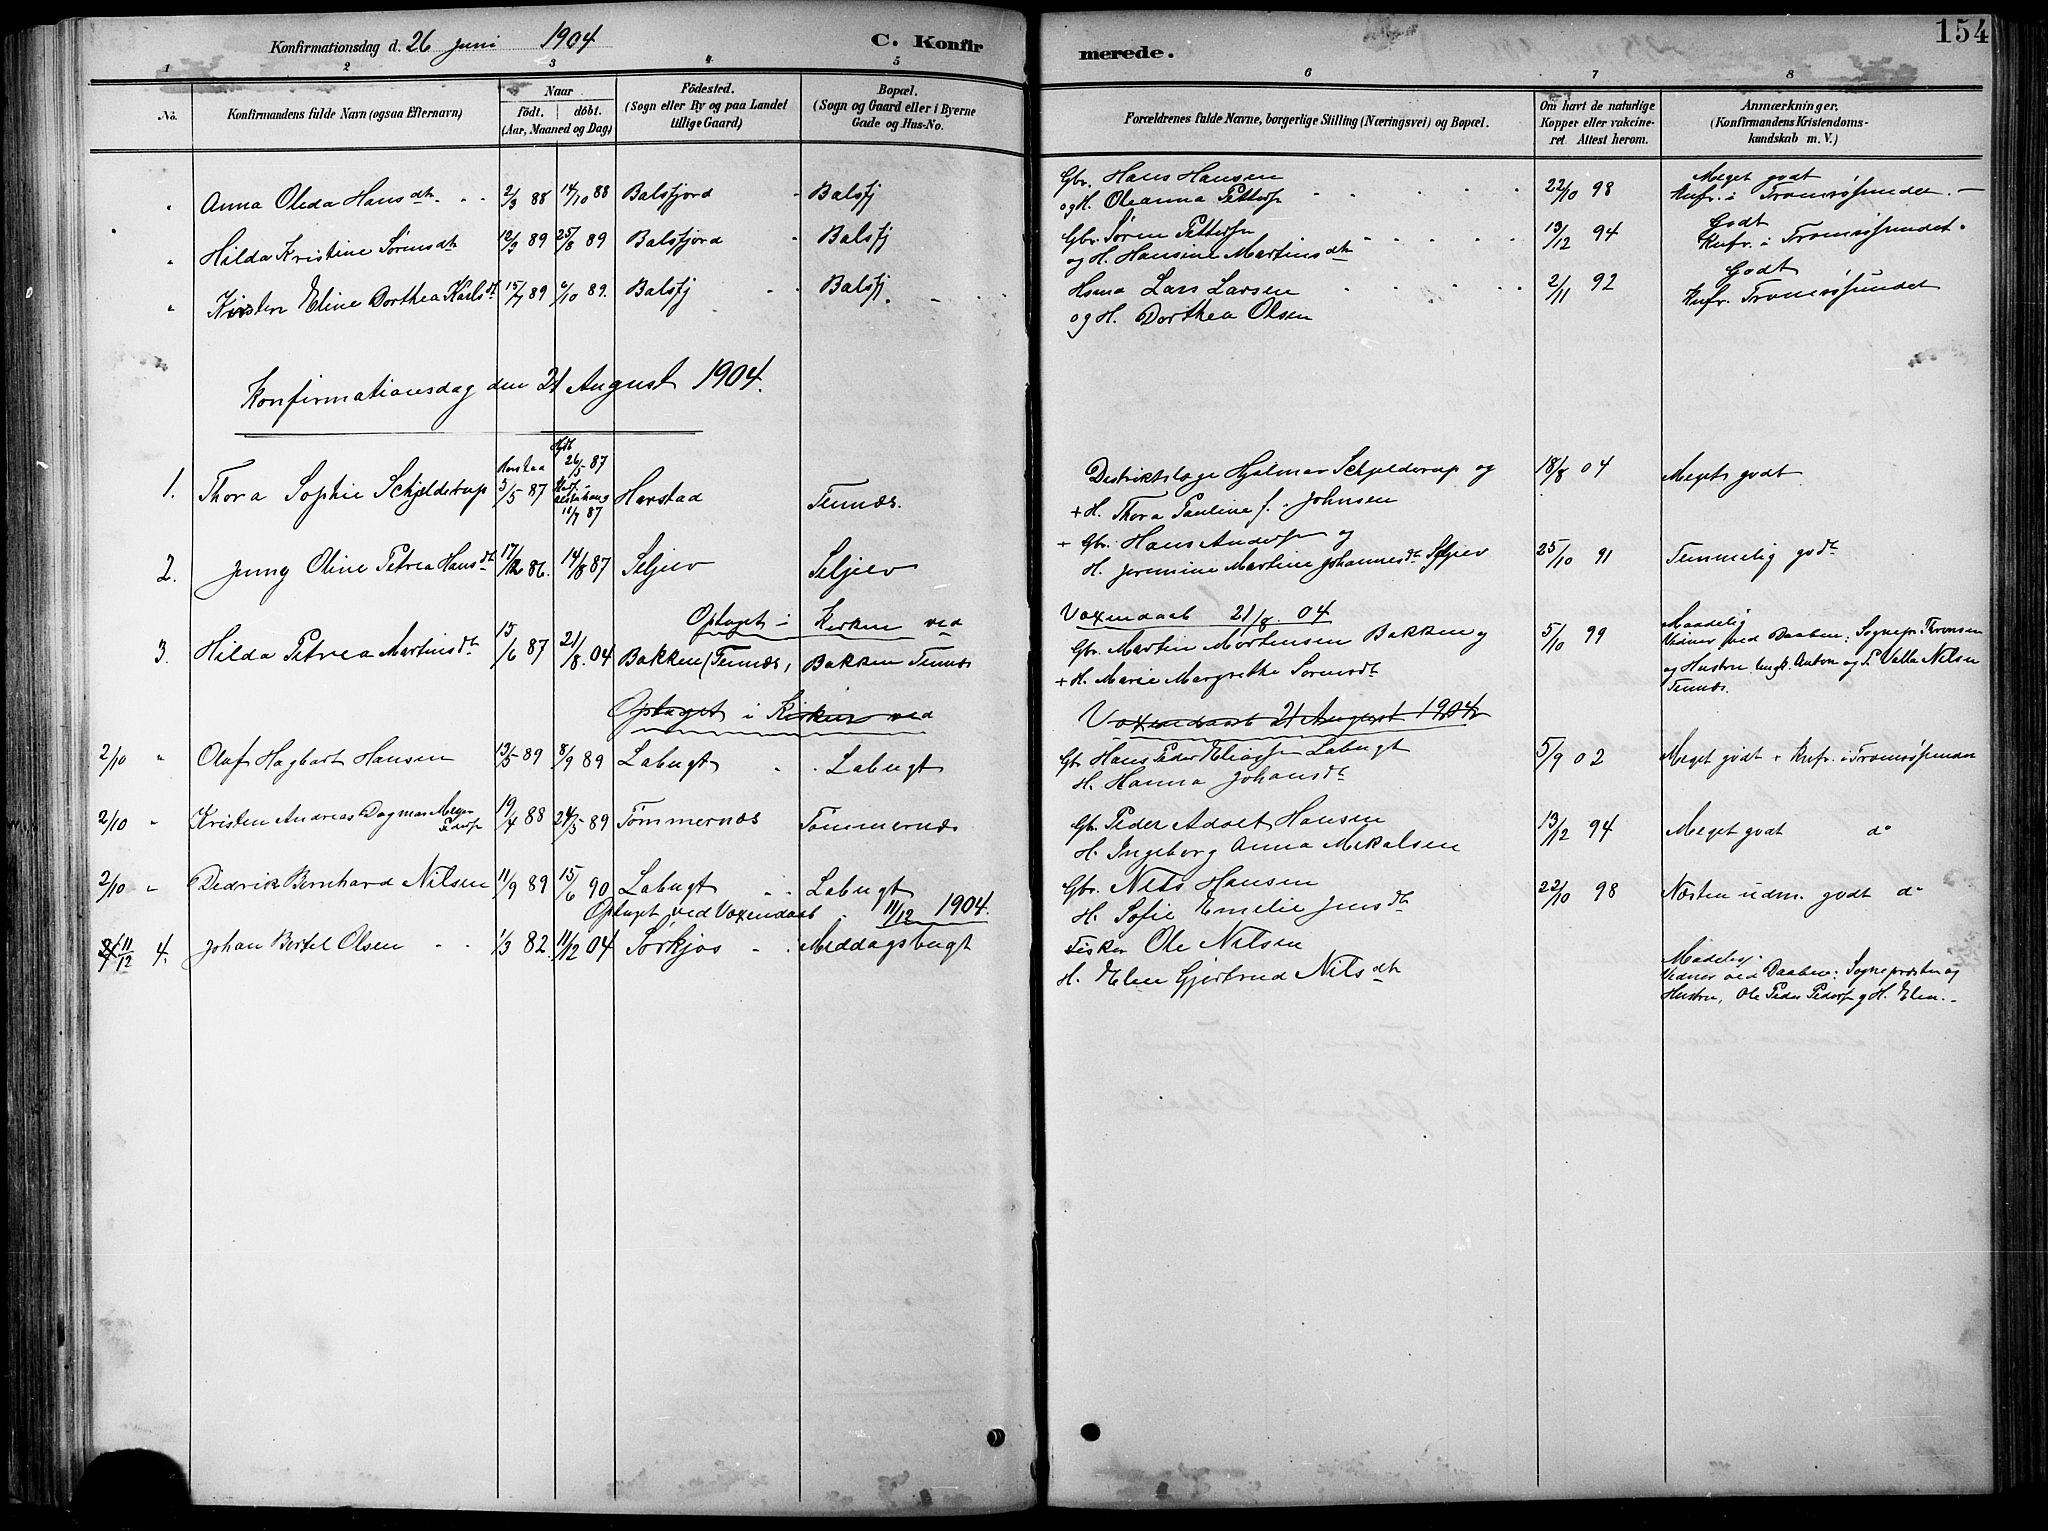 154
Konfirmationsdag d. 26 Juni 1904 C. Konfirmerede.
1 2 3 4 5 6 7 8
No. Konfirmandens fulde Navn (ogsaa Efternavn)
Naar födt. döbt. (Aar, Maaned og Dag)
Födested. (Sogn eller By og paa Landet tillige Gaard)
Bopæl. (Sogn og Gaard eller i Byerne Gade og Hus-No.
Forældrenes fulde Navne, borgerlige Stilling (Næringsvei) og Bopæl.
Om havt de naturlige Kopper eller vakcineret Attest herom.
Anmærkninger. (Konfirmandens Kristendomskundskab m. V.)
" Anna Oleda Hansdtr. 2/3 88 14/10 88 Balsfjord Balsfj Gbr. Hans Hansen 22/10 98 Meget godt
og H. Oleanna Petters Knfr. i Tromsösundet.
" Hilda Kristine Sörensdtr 12/3 89 25/8 89 Balsfjord Balsfj Gbr. Sören Petters 13/12 94 Godt
og H. Hansine Martinsdtr Knfr. i Tromsösundet.
" Kirsten Eline Dorthea Karlsdt 15/7 89 6/10 89. Balsfj Balsfj. Hsmd Lars Larsen 2/11 92 Godt
og H. Dorthea Olsen Knfr. Tromsösundet
Konfirmationsdag den 21 August 1904.
1. Thora Sophie Schjelderup 5/5 87 26/5 87 11/7 87 Harstad Tennæs. Distriktslæge Hjalmar Schjelderup og 18/8 04 Meget godt
+ H. Thora Pauline f. Johnsen
2. Jenny Oline Petrea Hansdt 17/12 86. 14/8 87 Seljelv Seljelv + Gbr. Hans Anders og 25/10 91 Temmelig godt
H. Jeremine Martine Johannesdt Seljelv
Optaget i Kirken ved Voxendaab 21/8. 04
3. Hilda Petrea Martinsdt 15/6 87 21/8. 04 Bakken (Tennæs, Bakken Tennæs Gbr. Martin Mortensen Bakken og 5/10 99 Maadelig
+ H. Marie Margrethe Sörensdt Vidner ved Daaben: Sognepr.
og Hustru Ungk. Anton og P. Valla Nilsen
Tennæs.
Optaget i Kirken ved Voxendaab 21 August 1904
2/10 " Olaf Hagbart Hansen 13/5 89 8/9 89 Labugt Labugt Gbr Hans Peder Elias Labugt 5/9 02 Meget godt + Knfr. i Tromsösundet
H. Hanna Johansdt
2/10 " Kristen Andreas Dagmar Meyer Peders 19/4 88 24/5 89 Tömmernæs Tömmernæs Gbr. Peder Adolf Hansen 13/12 94 Meget godt do
H. Ingeborg Anna Mikalsen
2/10 " Didrik Bernhard Nilsen 11/9 89 15/6 90 Labugt Labugt Gbr. Nils Hansen 22/10 98 Næsten udm. godt do
H. Sofie Emelie Jensdt
Optaget ved Voxendaab 11/12 1904.
11/12 4. Johan Bertel Olsen 1/3 82. 11/12 04 Sörkjos Meddagsbugt Fisker Ole Nilsen
H. Elen Gjertrud Nilsdtr Madelig.
Vidner ved Daaben: Sognepræsten og
Hustru, Ole Peder Peders og H. Elen.